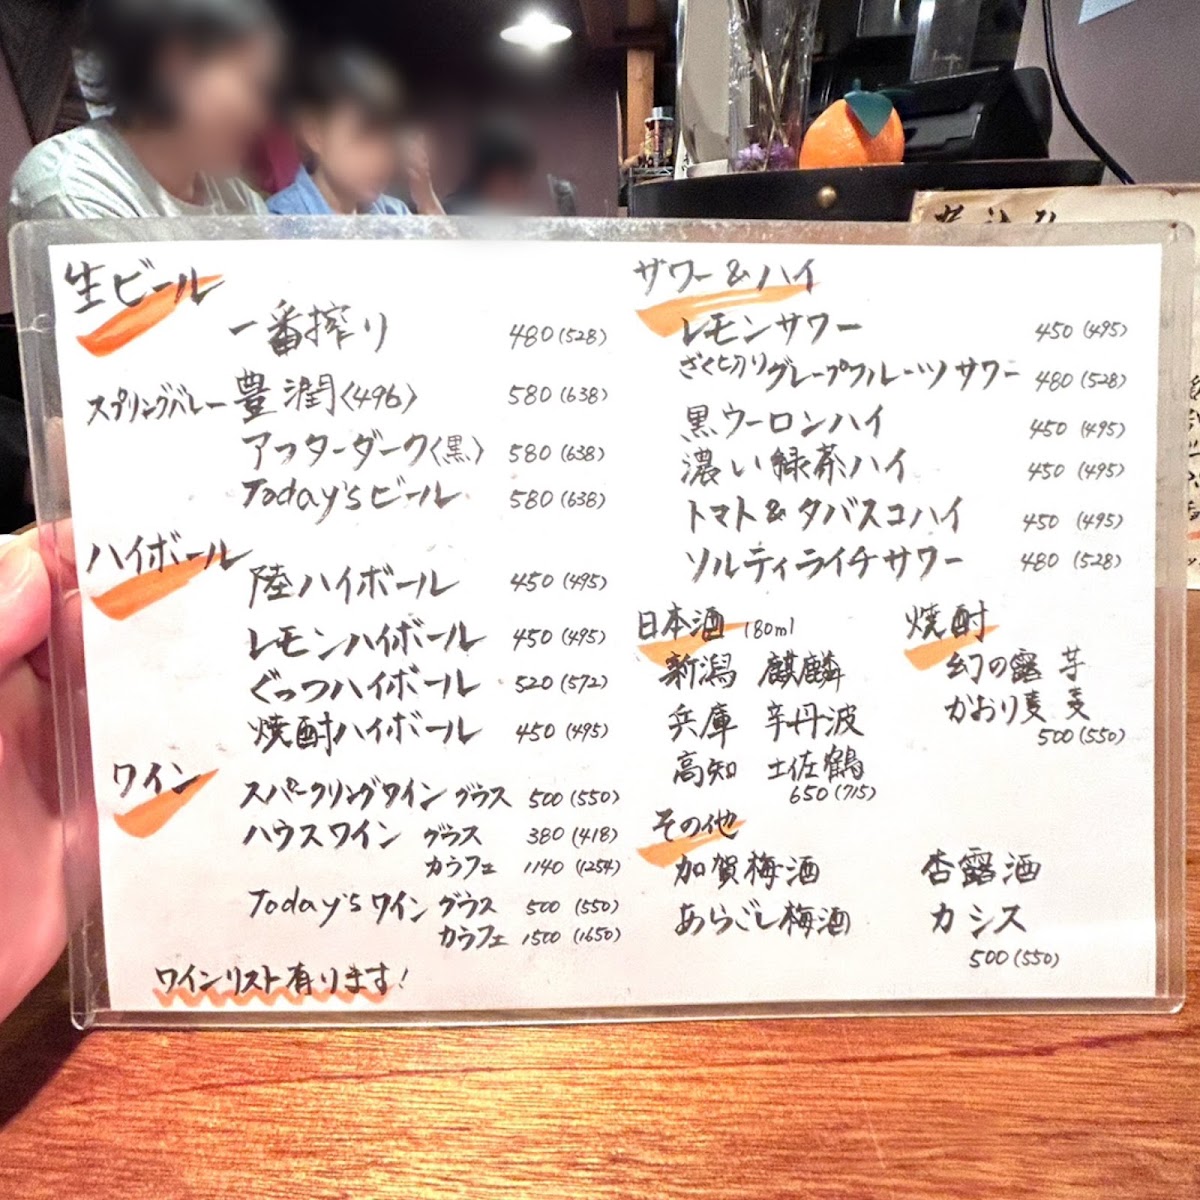 生ビール
一番搾り 480(528)
スプリングバレー 豊潤〈496〉 580(638)
アフターダーク〈黒〉 580(638)
Today'sビール 580(638)
ハイボール
陸ハイボール 450(495)
レモンハイボール 450(495)
ぐっつハイボール 520(572)
焼酎ハイボール 450(495)
ワイン
スパークリングワイン グラス 500(550)
ハウスワイン グラス 380(418)
カラフェ 1140(1254)
Today'sワイン グラス 500(550)
カラフェ 1500(1650)
ワインリスト有ります!
サワー&ハイ
レモンサワー 450(495)
ざく切りグレープフルーツサワー 480(528)
黒ウーロンハイ 450(495)
濃い緑茶ハイ 450(495)
トマト&タバスコハイ 450(495)
ソルティライチサワー 480(528)
日本酒 180ml
新潟 麒麟
兵庫 辛丹波
高知 土佐鶴
650(715)
焼酎
幻の露 芋
かおり麦 麦
500(550)
その他
加賀梅酒 杏露酒
あらごし梅酒 カシス
500(550)